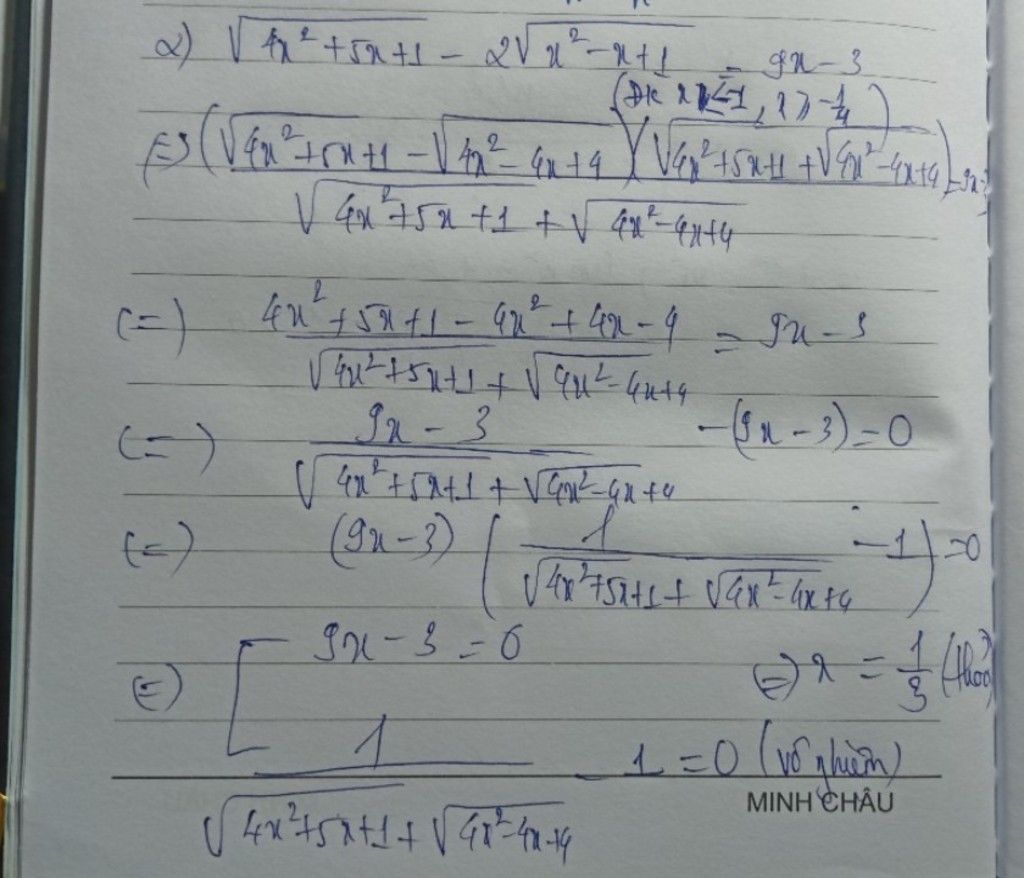 2) √(4x²+5x+1) - 2√(x²-x+1) = 9x-3
(ĐK x ≤ -1, x ≥ -1/4)
(=) (√(4x²+5x+1) - √(4x²-4x+4))(√(4x²+5x+1) + √(4x²-4x+4)) / (√(4x²+5x+1) + √(4x²-4x+4)) = 9x-3
(=) (4x²+5x+1-4x²+4x-4) / (√(4x²+5x+1) + √(4x²-4x+4)) = 9x-3
(=) (9x-3) / (√(4x²+5x+1) + √(4x²-4x+4)) -(9x-3)=0
(=) (9x-3) (1 / (√(4x²+5x+1) + √(4x²-4x+4)) - 1) = 0
(=) [ 9x-3 = 0 (=) x = 1/3 (thoả)
1 / (√(4x²+5x+1) + √(4x²-4x+4)) - 1 = 0 (vô nghiệm)
MINH CHÂU